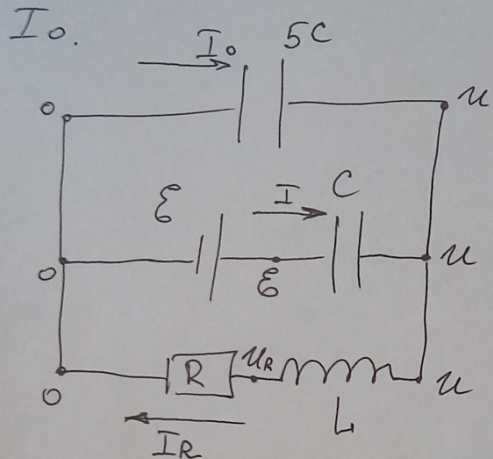 I₀.
I₀ 5C
0 u
ℰ I C
0 ℰ u
R u_R u
0 L
I_R